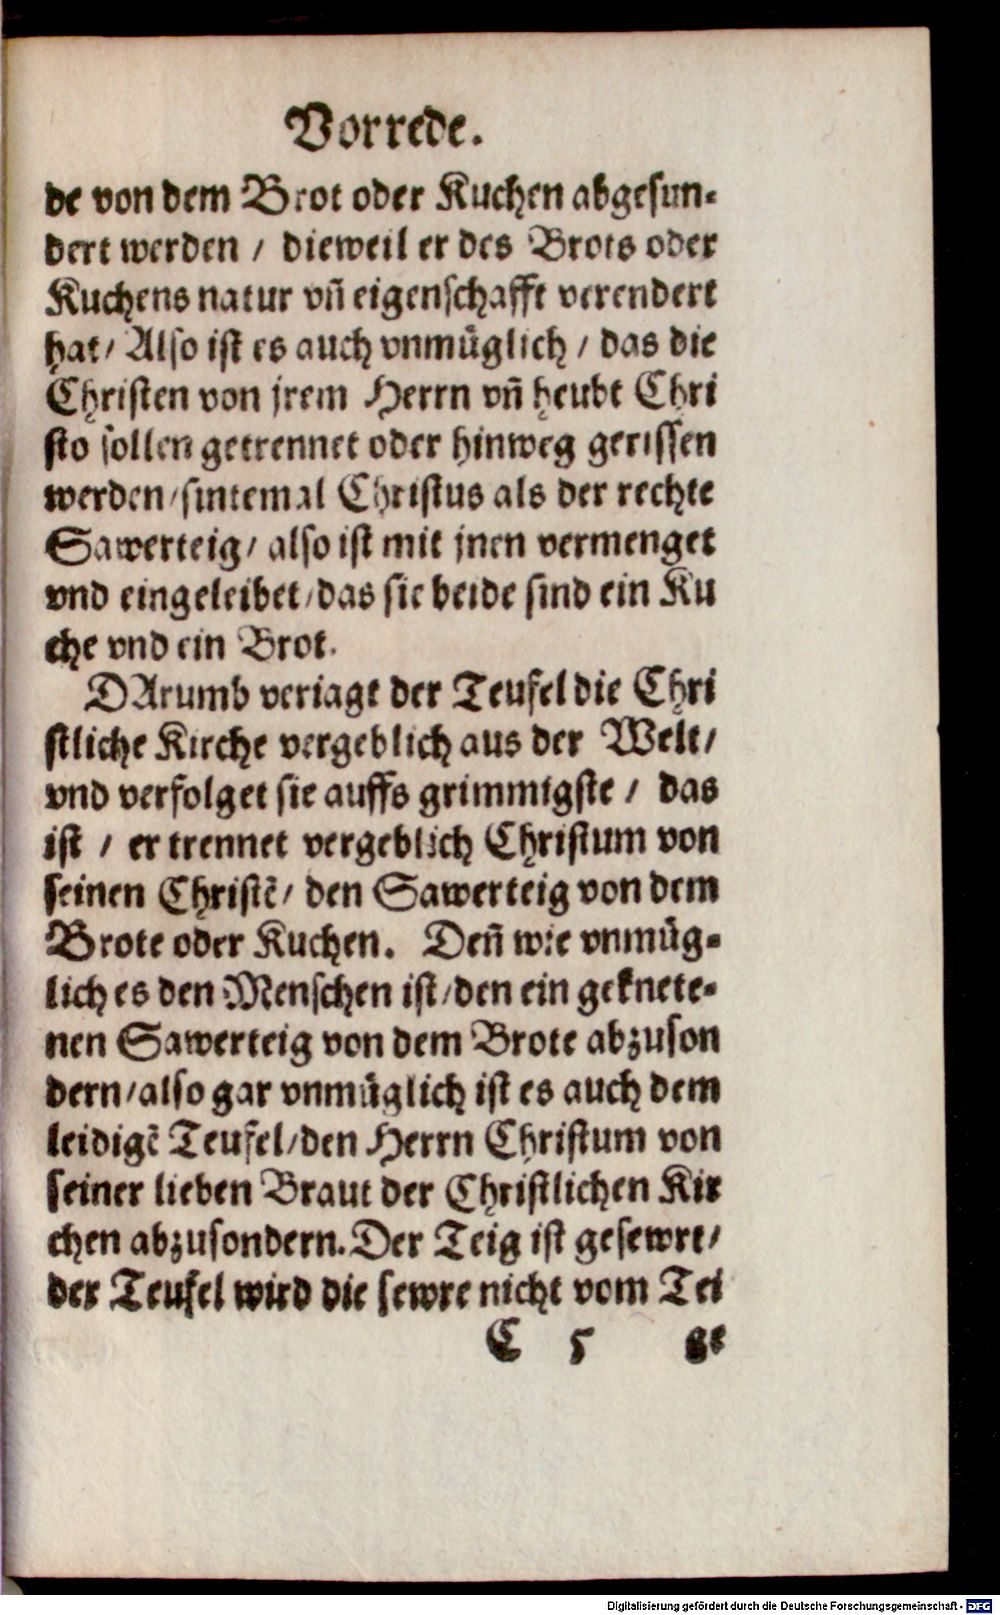 Vorrede.
de von dem Brot oder Kuchen abgesun-
dert werden / dieweil er des Brots oder
Kuchens natur vn̄ eigenschafft verendert
hat / Also ist es auch vnmüglich / das die
Christen von jrem Herrn vn̄ heubt Chri
sto sollen getrennet oder hinweg gerissen
werden / sintemal Christus als der rechte
Sawerteig / also ist mit jnen vermenget
vnd eingeleibet / das sie beide sind ein Ku
che vnd ein Brot.
DArumb veriagt der Teufel die Chri
stliche Kirche vergeblich aus der Welt /
vnd verfolget sie auffs grimmigste / das
ist / er trennet vergeblich Christum von
seinen Christē / den Sawerteig von dem
Brote oder Kuchen. Den̄ wie vnmüg-
lich es den Menschen ist / den ein geknete-
nen Sawerteig von dem Brote abzuson
dern / also gar vnmüglich ist es auch dem
leidigē Teufel / den Herrn Christum von
seiner lieben Braut der Christlichen Kir
chen abzusondern. Der Teig ist gesewrt /
der Teufel wird die sewre nicht vom Tei
C 5 ge
Digitalisierung gefördert durch die Deutsche Forschungsgemeinschaft - DFG